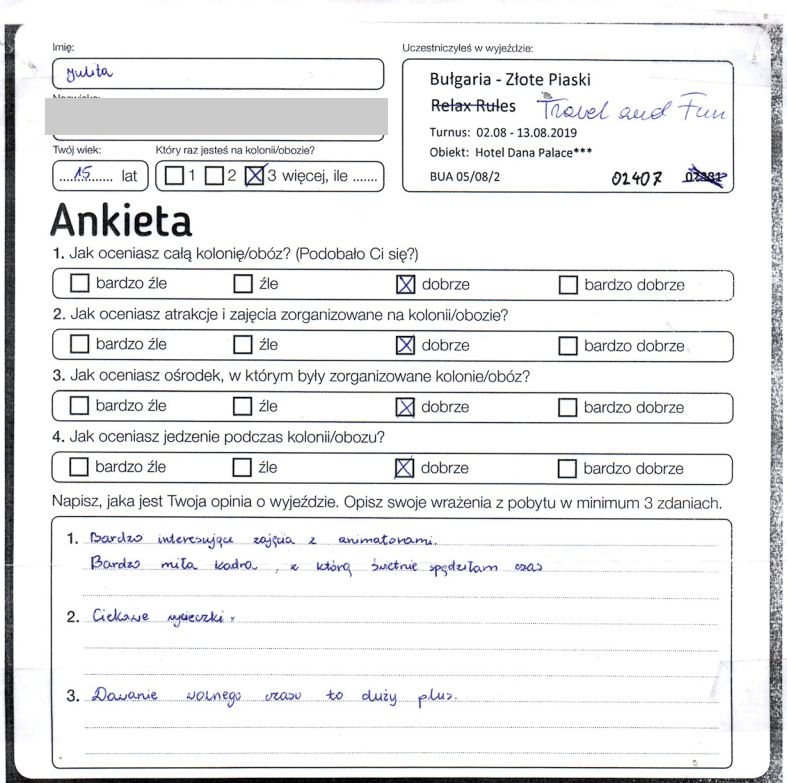 Imię:
Julita
Uczestniczyłeś w wyjeździe:
Bułgaria - Złote Piaski
Relax Rules Travel and Fun
Turnus: 02.08 - 13.08.2019
Obiekt: Hotel Dana Palace***
BUA 05/08/2 02407
Twój wiek:
15 lat
Który raz jesteś na kolonii/obozie?
1 2 3 więcej, ile .......
Ankieta
1. Jak oceniasz całą kolonię/obóz? (Podobało Ci się?)
bardzo źle źle dobrze bardzo dobrze
2. Jak oceniasz atrakcje i zajęcia zorganizowane na kolonii/obozie?
bardzo źle źle dobrze bardzo dobrze
3. Jak oceniasz ośrodek, w którym były zorganizowane kolonie/obóz?
bardzo źle źle dobrze bardzo dobrze
4. Jak oceniasz jedzenie podczas kolonii/obozu?
bardzo źle źle dobrze bardzo dobrze
Napisz, jaka jest Twoja opinia o wyjeździe. Opisz swoje wrażenia z pobytu w minimum 3 zdaniach.
1. Bardzo interesujące zajęcia z animatorami.
Bardzo miła kadra, z którą świetnie spędziłam czas
2. Ciekawe wycieczki.
3. Dawanie wolnego czasu to duży plus.